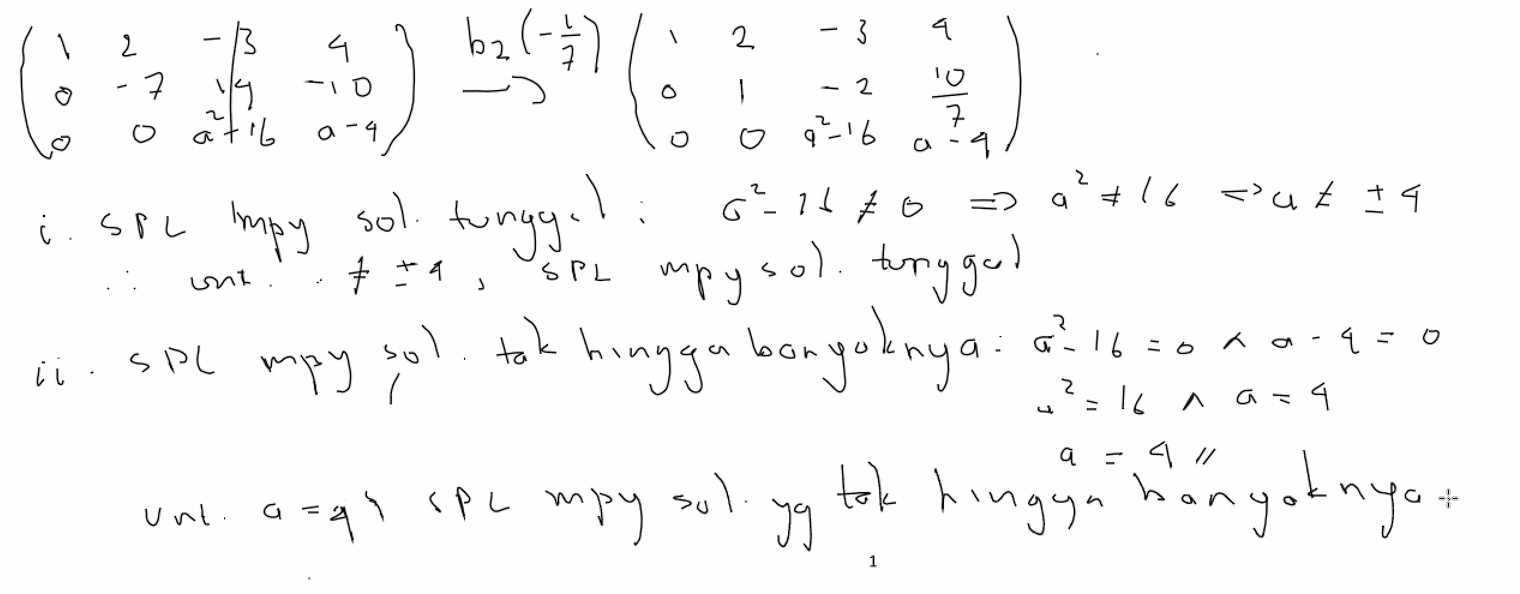 1 2 -3 4 b₂(-1/7) 1 2 -3 4
0 -7 14 -10 → 0 1 -2 10/7
0 0 a²+16 a-4 0 0 a²-16 a-4
i. SPL mpy sol. tunggal : a²-16 ≠ 0 => a² ≠ 16 => a ≠ ±4
∴ unt. ≠ ±4, SPL mpy sol. tunggal
ii. SPL mpy sol. tak hingga banyaknya: a²-16 = 0 ∧ a-4 = 0
a² = 16 ∧ a = 4
a = 4 //
unt. a = 4, SPL mpy sol. yg tak hingga banyaknya
1